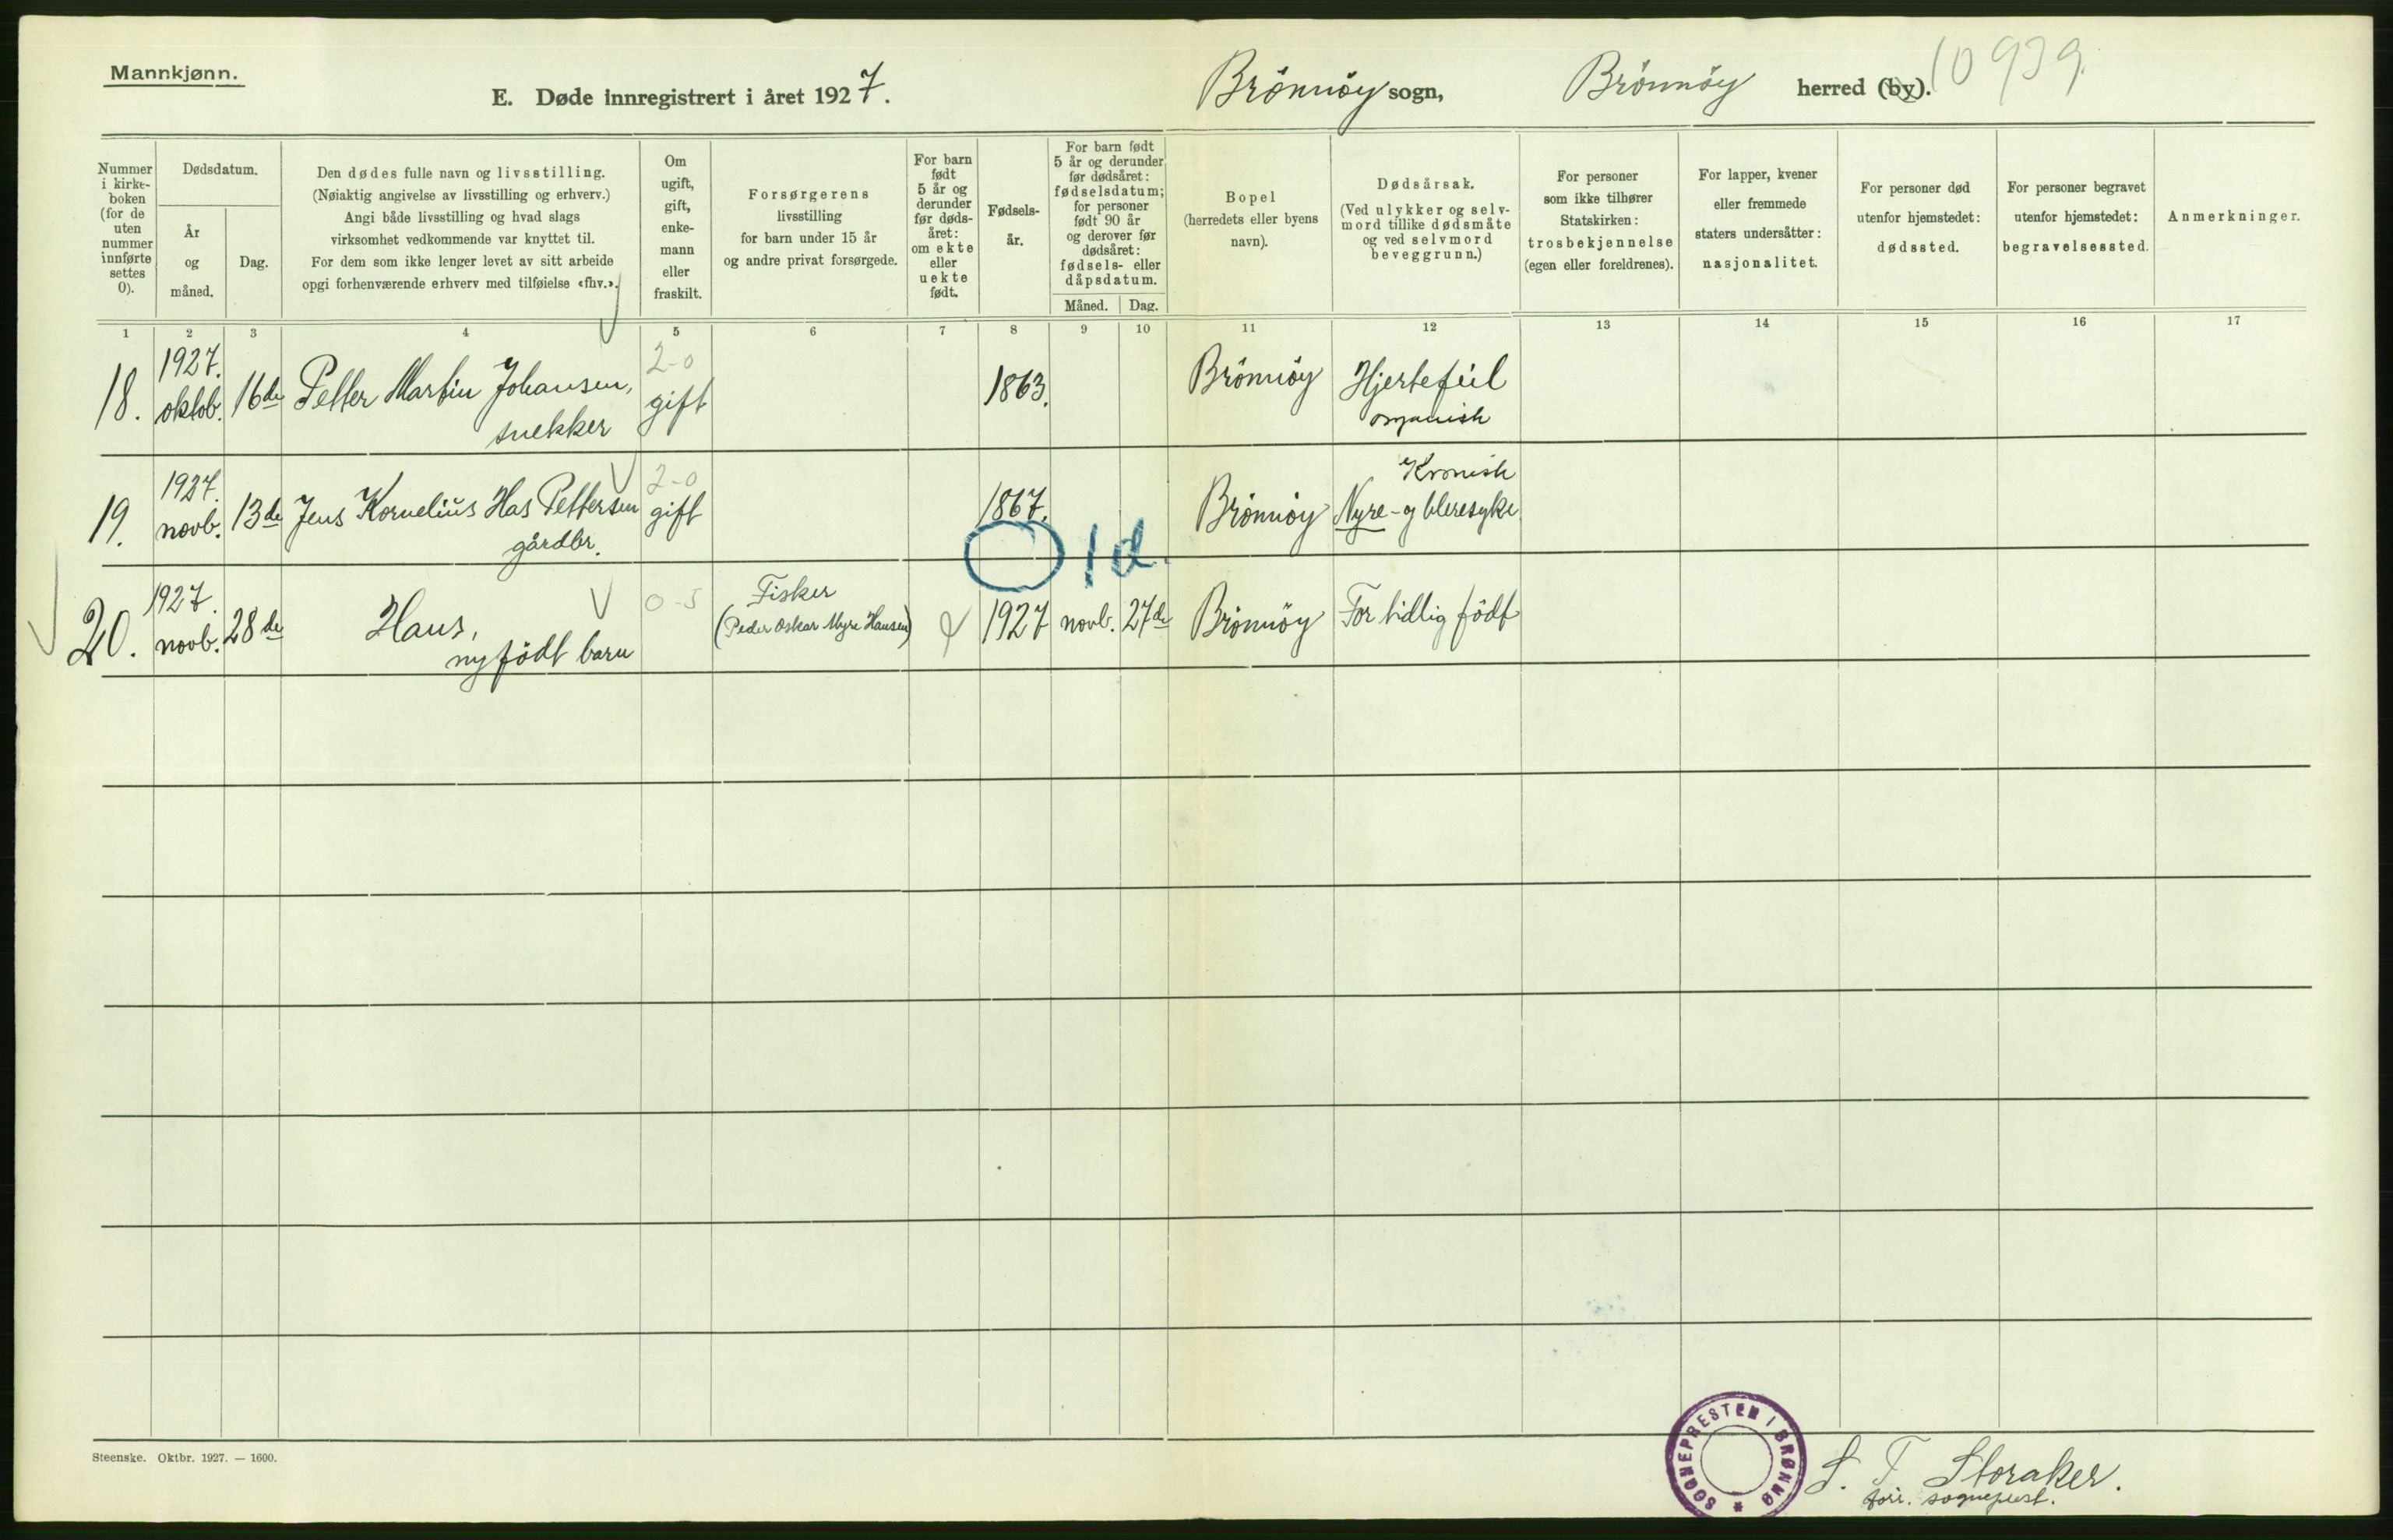 Mannkjønn.
E. Døde innregistrert i året 1927. Brönnöy sogn, Brönnöy herred (by). 10939
Nummer i kirke- boken (for de uten nummer innførte settes 0).
Dødsdatum.
År og måned.
Dag.
Den dødes fulle navn og livsstilling.
(Nøiaktig angivelse av livsstilling og erhverv.)
Angi både livsstilling og hvad slags
virksomhet vedkommende var knyttet til.
For dem som ikke lenger levet av sitt arbeide
opgi forhenværende erhverv med tilføielse «fhv.».
Om ugift, gift, enke- mann eller fraskilt.
Forsørgerens
livsstilling
for barn under 15 år
og andre privat forsørgede.
For barn født 5 år og derunder før døds- året: om ekte eller uekte født.
Fødsels- år.
For barn født 5 år og derunder før dødsåret: fødselsdatum; for personer født 90 år og derover før dødsåret: fødsels- eller dåpsdatum.
Måned. Dag.
Bopel
(herredets eller byens
navn).
Dødsårsak.
(Ved ulykker og selv-
mord tillike dødsmåte
og ved selvmord
beveggrunn.)
For personer
som ikke tilhører
Statskirken:
trosbekjennelse
(egen eller foreldrenes).
For lapper, kvener
eller fremmede
staters undersåtter:
nasjonalitet.
For personer død
utenfor hjemstedet:
dødssted.
For personer begravet
utenfor hjemstedet:
begravelsessted.
Anmerkninger.
1 2 3 4 5 6 7 8 9 10 11 12 13 14 15 16 17
18. 1927. oktob. 16de Petter Martin Johansen, snekker 2-0 gift 1863. Brönnöy Hjertefeil organisk
19. 1927. novb. 13de Jens Kornelius Has Pettersen gårdbr. 2-0 gift 1867. Brönnöy Kronisk Nyre- og bleresyke
1 d.
20. 1927. novb. 28de Hans, nyfödt barn 0-5 Fisker (Peder Oskar Myre Hansen) 1927 novb. 27de Brönnöy For tidlig födt
Steenske. Oktbr. 1927. — 1600.
SOGNEPRESTEN I BRØNNØ
S. T. Storaker.
sogneprest.